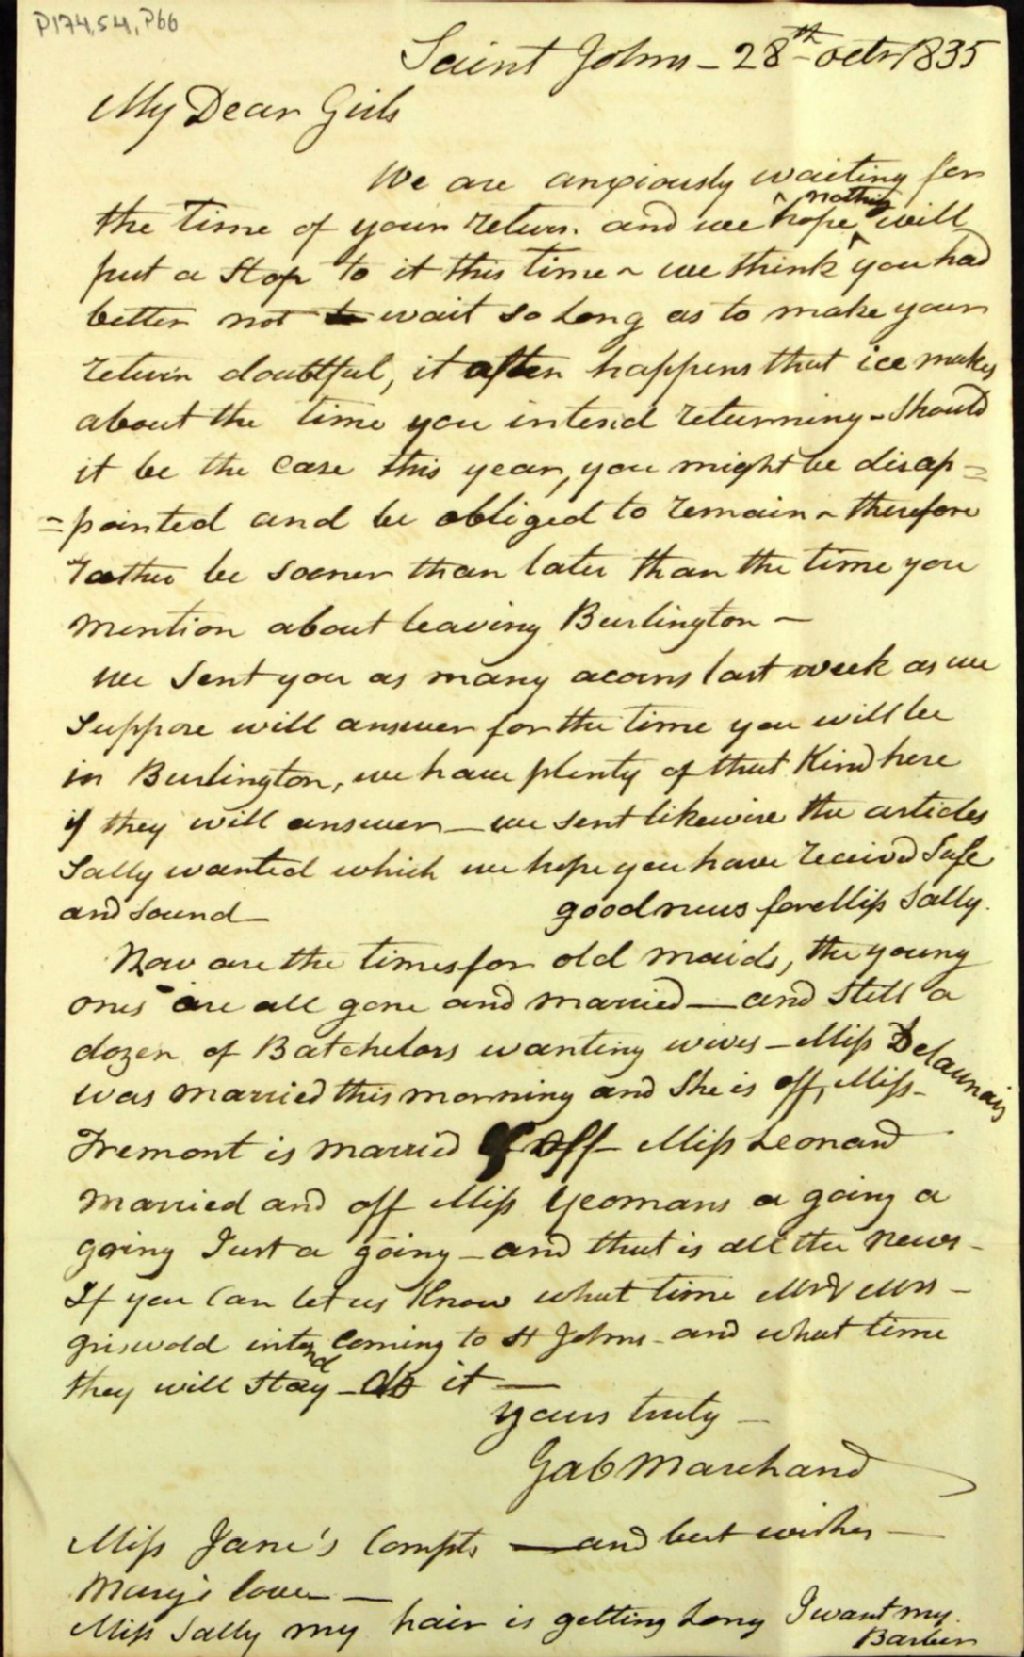 P174,S4,P66
Saint Johns - 28th octr 1835
My Dear Girls
We are anxiously waiting for
the time of your return. and we hope nothing will
put a stop to it this time ~ we think you had
better not to wait so long as to make your
return doubtful, it often happens that ice makes
about the time you intend returning - should
it be the case this year, you might be disap=
=pointed and be obliged to remain ~ therefore
rather be sooner than later than the time you
mention about leaving Burlington ~
we sent you as many acorns last week as we
suppose will answer for the time you will be
in Burlington, we have plenty of that Kind here
if they will answer — we sent likewise the articles
Sally wanted which we hope you have received safe
and sound — good news for Miss Sally.
Now are the times for old maids, the young
ones are all gone and married — and still a
dozen of Batchelors wanting wives - Miss Delaunais
was married this morning and she is off, Miss -
Tremont is married & off - Miss Leonard
married and off Miss Yeomans a going a
going Just a going - and that is all the news -
If you Can let us Know what time Mr & Mrs -
Griswold intend Coming to St Johns - and what time
they will stay - do it —
yours truly —
Gab Marchand
Miss Jane's Compts — and best wishes —
Mary's love —
Miss Sally my hair is getting long I want my
Barber